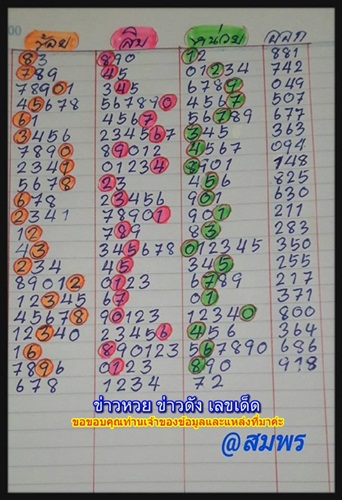 ร้อย สิบ หน่วย ผลก
83 890 12 881
789 45 01234 742
78901 345 6789 049
45678 567890 4567 507
61 4567 56789 677
3456 234567 345 363
7890 89012 4567 094
2341 01234 8901 148
5678 23 456 825
678 23456 901 630
2341 78901 901 211
12 789 83 283
43 345678 012345 350
234 45 345 255
89012 0123 6789 217
12345 67 01 371
45678 90123 12340 800
12340 23456 456 364
16 890123 567890 686
7896 0123 890 918
678 1234 72
ข่าวหวย ข่าวดัง เลขเด็ด
ขอขอบคุณท่านเจ้าของข้อมูลและแหล่งที่มาค่ะ
@สมพร